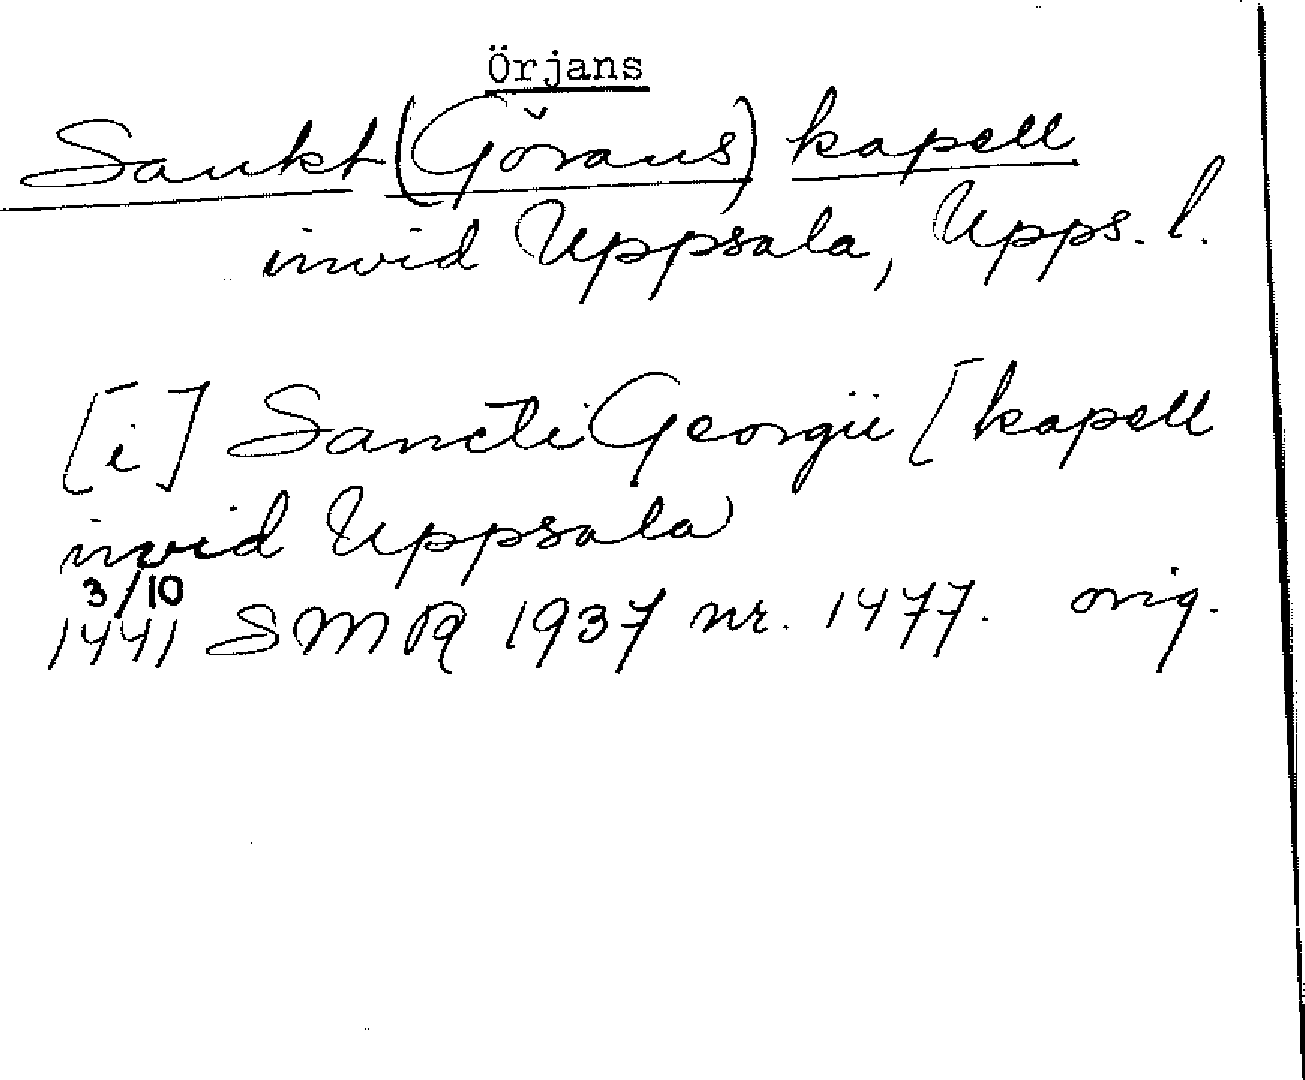 Örjans
Sankt (Görans) kapell
invid Uppsala, Upps. l.
[i] Sancti Georgii [kapell
invid Uppsala
3/10
1441 SMR 1937 nr. 1477. orig.